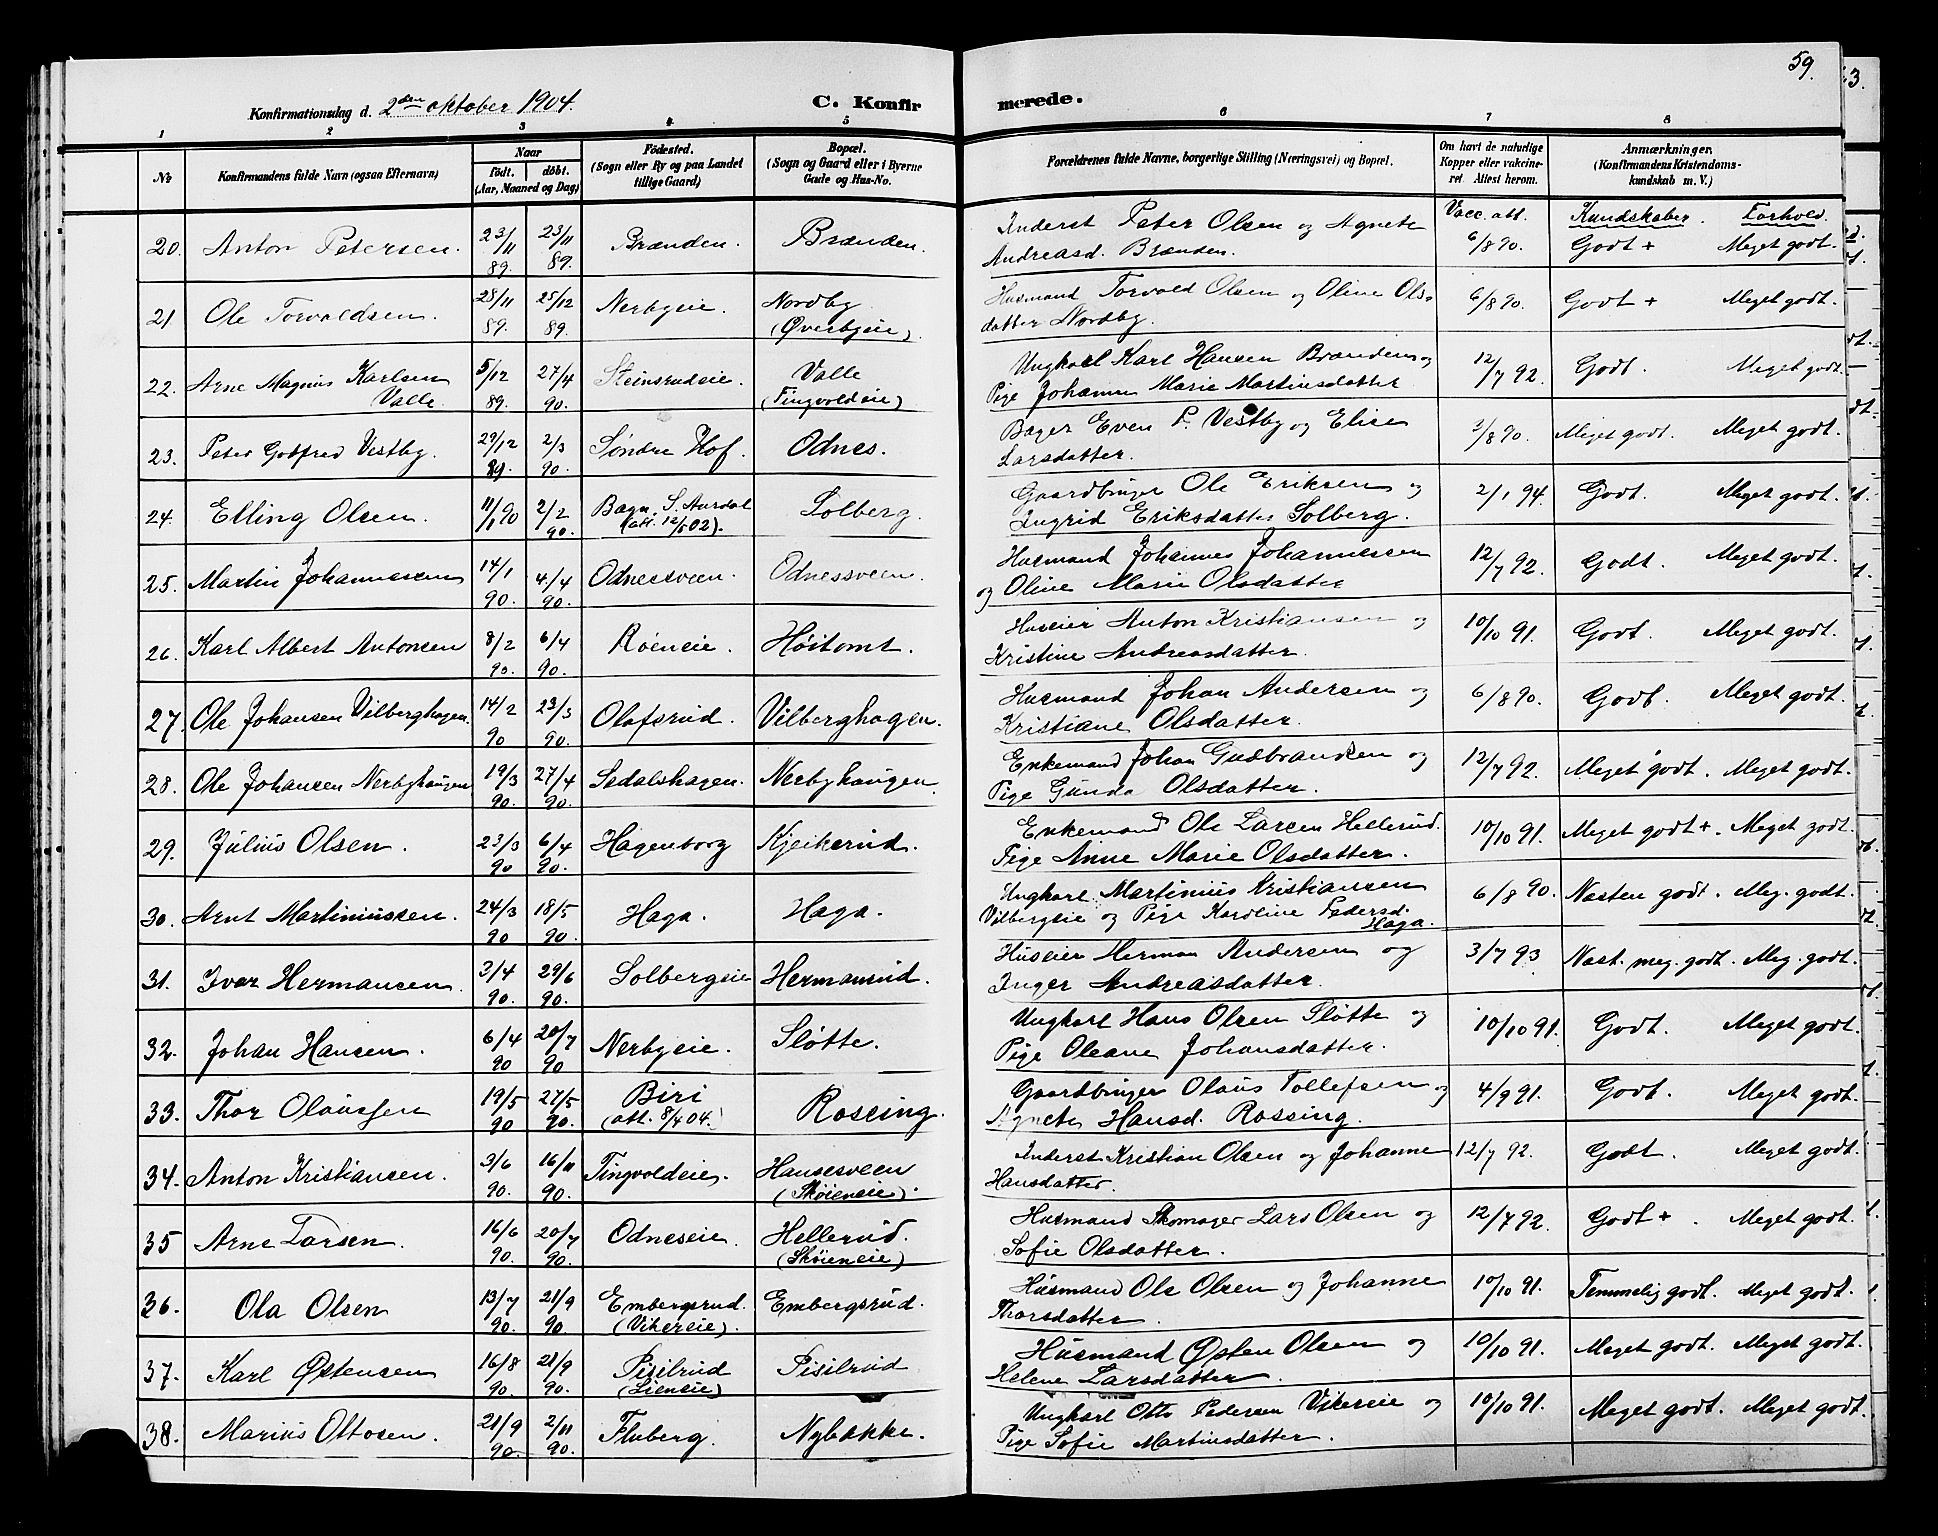 59.
3.
Konfirmationsdag d. 2den oktober 1904.
C. Konfirmerede.
1 2 3 4 5 6 7 8
No
Konfirmandens fulde Navn (ogsaa Efternavn)
Naar
født. døbt.
(Aar, Maaned og Dag)
Fødested.
(Sogn eller By og paa Landet
tillige Gaard)
Bopæl.
(Sogn og Gaard eller i Byerne
Gade og Hus-No.
Forældrenes fulde Navne, borgerlige Stilling (Næringsvei) og Bopæl.
Om havt de naturlige
Kopper eller vakcine-
ret. Attest herom.
Anmærkninger.
(Konfirmandens Kristendoms-
kundskab m. V.)
Vacc. att. Kundskaber. Forhold.
20. Anton Petersen. 23/11 89. 23/11 89. Brænden. Brænden. Inderst Peter Olsen og Agnete
Andreasd. Brænden. 6/8 90. Godt + Meget godt.
21. Ole Torvaldsen. 28/11 89. 25/12 89. Nerbyeie. Nordby
(Øverbyeie). Husmand Torvald Olsen og Oline Ols-
datter Nordby. 6/8 90. Godt + Meget godt.
22. Arne Magnus Karlsen
Valle. 5/12 89. 27/4 90. Steinsrudeie. Valle
(Tingvoldeie) Ungkarl Karl Hansen Brænden og
Pige Johanne Marie Martinsdatter 12/7 92. Godt. Meget godt.
23. Peter Godfred Vestby. 29/12 89. 2/3 90. Søndre Hof. Odnes. Bager Even P. Vestby og Elise
Larsdatter. 3/8 90. Meget godt. Meget godt.
24. Elling Olsen. 11/1 90 2/2 90. Bagn, S. Aurdal
(att. 12/5 02). Solberg. Gaardbruger Ole Eriksen og
Ingrid Eriksdatter Solberg. 2/1 94. Godt. Meget godt.
25. Martin Johannessen 14/1 90. 4/4 90. Odnessveen. Odnessveen. Husmand Johannes Johannessen
og Oline Marie Olsdatter 12/7 92. Godt. Meget godt.
26. Karl Albert Antonsen 8/2 90. 6/4 90. Røeneie. Høitomt. Huseier Anton Kristiansen og
Kristine Andreasdatter. 10/10 91. Godt. Meget godt.
27. Ole Johansen Vilberghagen. 14/2 90 23/3 90. Olafsrud. Vilberghagen. Husmand Johan Andersen og
Kristiane Olsdatter. 6/8 90. Godt. Meget godt.
28. Ole Johansen Nerbyhaugen 19/3 90. 27/4 90. Sedalshagen. Nerbyhaugen. Enkemand Johan Gudbrandsen og
Pige Gunda Olsdatter. 12/7 92. Meget godt. Meget godt.
29. Julius Olsen. 23/3 90 6/4 90. Hagenborg Kjeikerud. Enkemand Ole Larsen Hellerud.
Pige Anne Marie Olsdatter. 10/10 91. Meget godt +. Meget godt.
30. Arnt Martiniussen. 24/3 90 18/5 90. Haga. Haga. Ungkarl Martinius Kristiansen
Vilbergeie og Pige Karoline Pedersd.
Haga. 6/8 90. Næsten godt. Meg. godt.
31. Iver Hermansen. 3/4 90. 29/6 90. Solbergeie Hermansrud. Huseier Herman Andersen og
Inger Andreasdatter. 3/7 93 Næst. meg. godt. Meg. godt.
32. Johan Hansen. 6/4 90 20/7 90 Nerbyeie. Sløtte. Ungkarl Hans Olsen Sløtte og
Pige Oleane Johansdatter. 10/10 91. Godt. Meget godt.
33. Thor Olaussen 19/5 90 27/5 90. Biri
(att. 8/4 04.) Rossing. Gaardbruger Olaus Tollefsen og
Agnete Hansd. Rossing. 4/9 91. Godt. Meget godt.
34. Anton Kristiansen. 3/6 90. 16/11 90. Tingvoldeie. Hansesveen
(Skøieneie). Inderst Kristian Olsen og Johanne
Hansdatter. 12/7 92. Godt. Meget godt.
35 Arne Larsen. 16/6 90. 20/7 90. Odneseie. Hellerud.
(Skøieneie) Husmand Skomager Lars Olsen og
Sofie Olsdatter. 12/7 92. Godt +. Meget godt.
36. Ola Olsen 13/7 90. 21/9 90. Embergsrud.
(Vikereie). Embergsrud. Husmand Ole Olsen og Johanne
Thorsdatter. 10/10 91. Temmelig godt. Meget godt.
37. Karl Østensen 16/8 90. 21/9 90. Pisilrud
(Lieneie) Pisilrud Husmand Østen Olsen og
Helene Larsdatter. 10/10 91. Meget godt. Meget godt.
38. Marius Ottosen. 21/9 90. 2/11 90. Fluberg. Nybakke. Ungkarl Otto Pedersen Vikereie og
Pige Sofie Martinsdatter. 10/10 91. Meget godt. Meget godt.